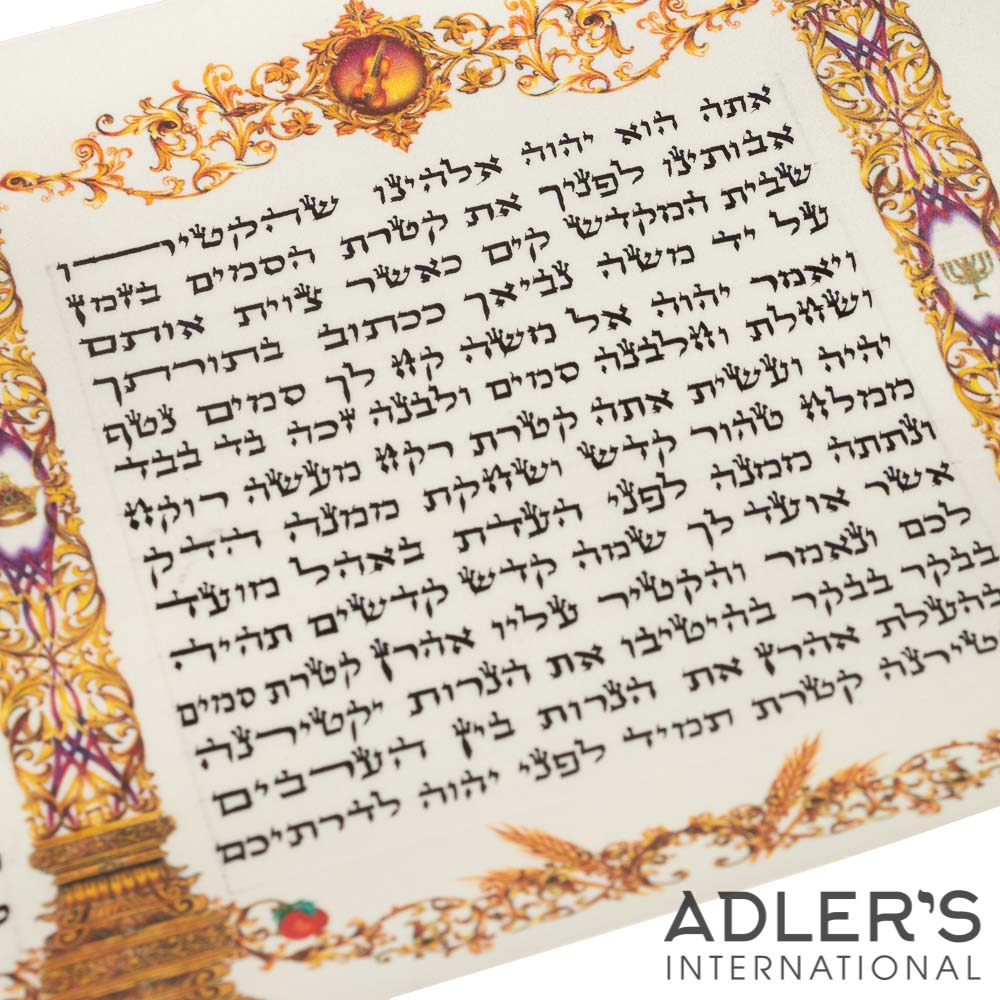 אתה הוא יהוה אלהינו שהקטירו
אבותינו לפניך את קטרת הסמים בזמן
שבית המקדש קים כאשר צוית אותם
על יד משה נביאך ככתוב בתורתך
ויאמר יהוה אל משה קח לך סמים נטף
ושחלת וחלבנה סמים ולבנה זכה בד בבד
יהיה ועשית אתה קטרת רקח מעשה רוקח
ממלח טהור קדש ושחקת ממנה הדק
ונתתה ממנה לפני העדת באהל מועד
אשר אועד לך שמה קדש קדשים תהיה
לכם ונאמר והקטיר עליו אהרן קטרת סמים
בבקר בבקר בהיטיבו את הנרות יקטירנה
בהעלת אהרן את הנרות בין הערבים
טירנה קטרת תמיד לפני יהוה לדרתיכם
ADLER'S
INTERNATIONAL